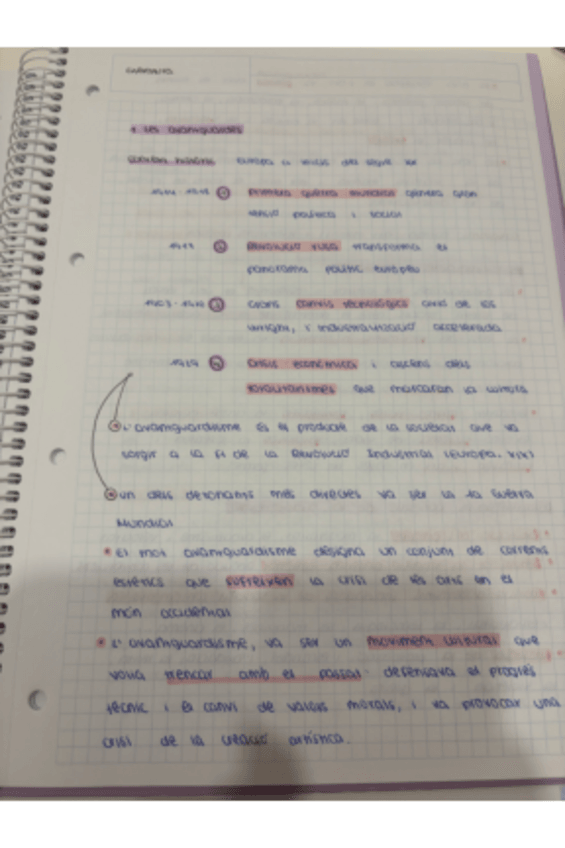 1. Les avantguardes
context històric Europa a inicis del segle XX
1914 - 1918 primera guerra mundial genera gran
tensió política i social
1917 Revolució russa transforma el
panorama polític europeu
grans canvis tecnològics avió de els
wright, i industrialització accelerada
1929 crisis econòmica i ascens dels
totalitarismes que marcaran la cultura
L'avantguardisme és el producte de la societat que va
sorgir a la fi de la Revolució Industrial (Europa, XIX)
un dels detonants més directes va ser la 1a Guerra
Mundial
• El mot avantguardisme designa un conjunt de corrents
estètics que sofreixen la crisi de les arts en el
món occidental
• L'avantguardisme, va ser un moviment cultural que
volia trencar amb el passat. defensava el progrés
tècnic i el canvi de valors morals, i va provocar una
crisi de la creació artística.